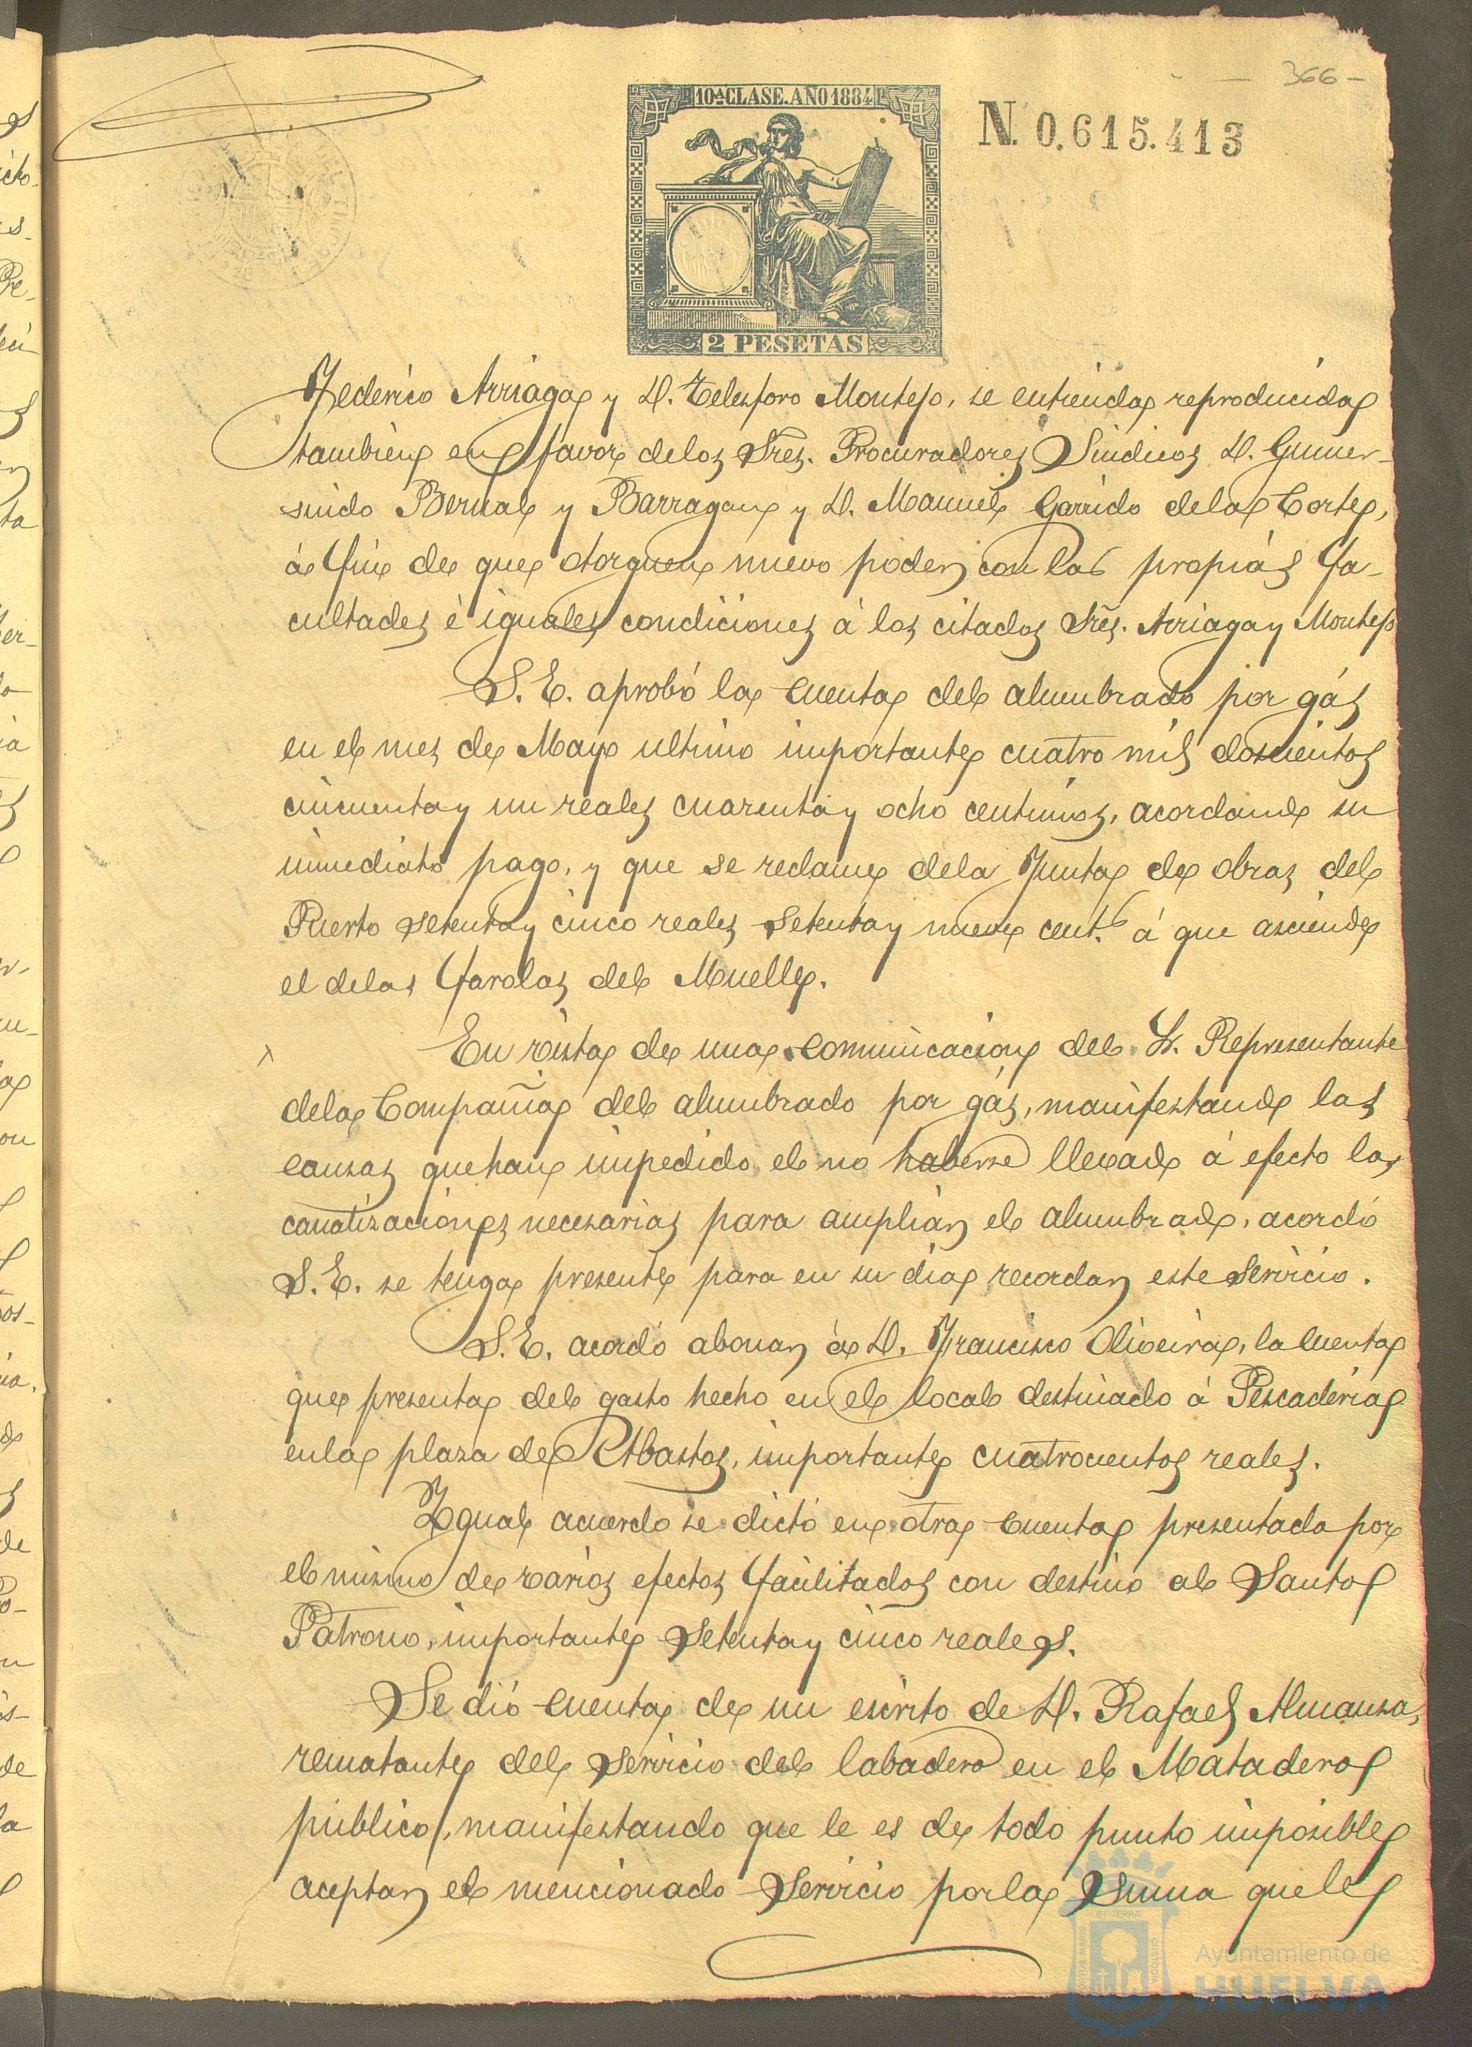 366-
10ª CLASE. AÑO 1884
N. 0.615.413
2 PESETAS
Federico Arriaga y D. Telesforo Montejo, se entienda reproducida
tambien en favor de los Sres. Procuradores Sindicos D. Gumer-
sindo Bernal y Barragan y D. Manuel Garrido de la Corte,
á fin de que otorguen nuevo poder con las propias fa-
cultades é iguales condiciones á los citados Sres. Arriaga y Montejo
S. E. aprobó la cuenta del alumbrado por gás
en el mes de Mayo ultimo importante cuatro mil doscientos
cincuenta y un reales cuarenta y ocho centimos, acordando su
inmediato pago, y que se reclame de la Junta de obras del
Puerto setenta y cinco reales setenta y nueve cent.s á que asciende
el de las farolas del Muelle.
En vista de una comunicacion del Sr. Representante
de la Compañia del alumbrado por gás, manifestando las
causas que han impedido el no haberse llevado á efecto las
canalizaciones necesarias para ampliar el alumbrado, acordó
S. E. se tenga presente para en su dia recordar este servicio.
S. E. acordó abonar á D. Francisco Oliveira, la cuenta
que presenta del gasto hecho en el local destinado á Pescaderia
en la plaza de Abastos, importante cuatrocientos reales.
Igual acuerdo se dictó en otra cuenta presentada por
el mismo de varios efectos facilitados con destino al Santo
Patrono, importante setenta y cinco reales.
Se dió cuenta de un escrito de D. Rafael Almansa,
rematante del servicio del labadero en el Matadero
publico, manifestando que le es de todo punto imposible
aceptar el mencionado servicio por la suma que le
Ayuntamiento de
HUELVA